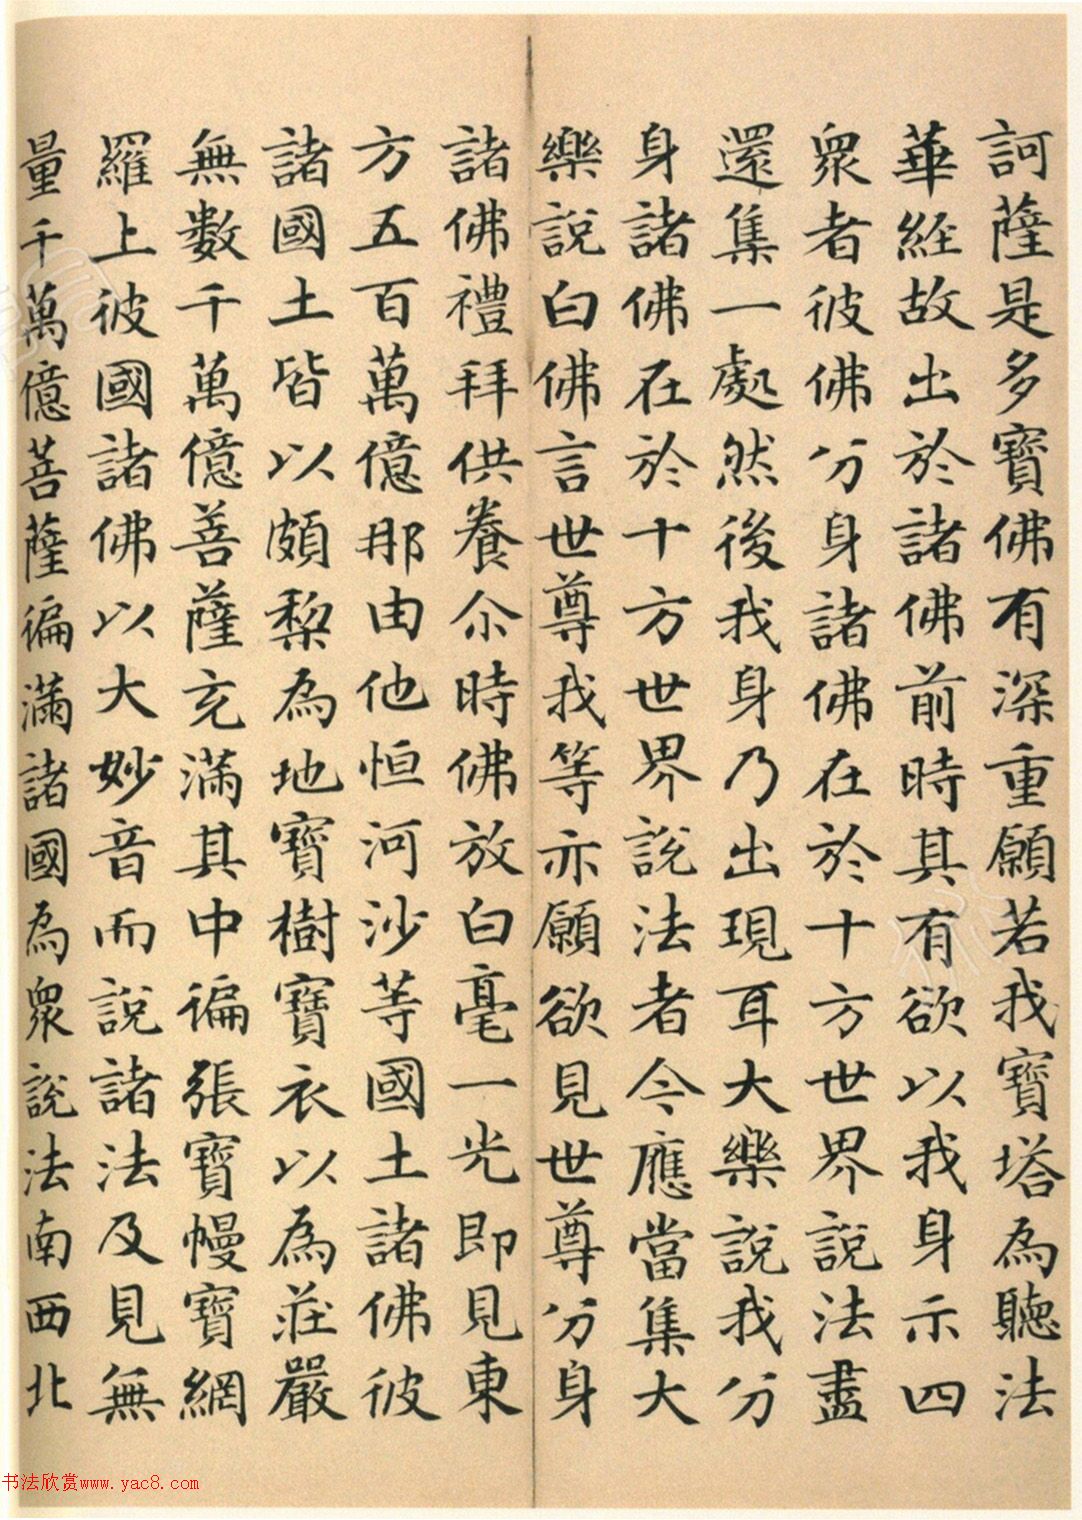 訶薩是多寶佛有深重願若我寶塔為聽法
華経故出於諸佛前時其有欲以我身示四
眾者彼佛分身諸佛在於十方世界說法盡
還集一處然後我身乃出現耳大樂說我分
身諸佛在於十方世界說法者今應當集大
樂說白佛言世尊我等亦願欲見世尊分身
諸佛禮拜供養尒時佛放白毫一光即見東
方五百萬億那由他恒河沙等國土諸佛彼
諸國土皆以頗梨為地寶樹寶衣以為莊嚴
無數千萬億菩薩充滿其中徧張寶幔寶網
羅上彼國諸佛以大妙音而說諸法及見無
量千萬億菩薩徧滿諸國為眾說法南西北
书法欣赏www.yac8.com